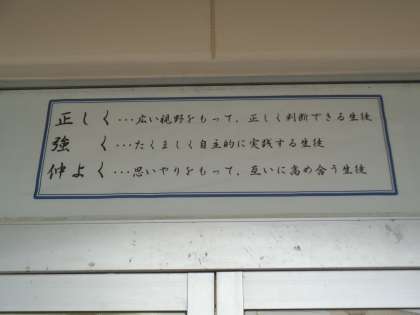 正しく…広い視野をもって、正しく判断できる生徒
強く…たくましく自主的に実践する生徒
仲よく…思いやりをもって、互いに高め合う生徒